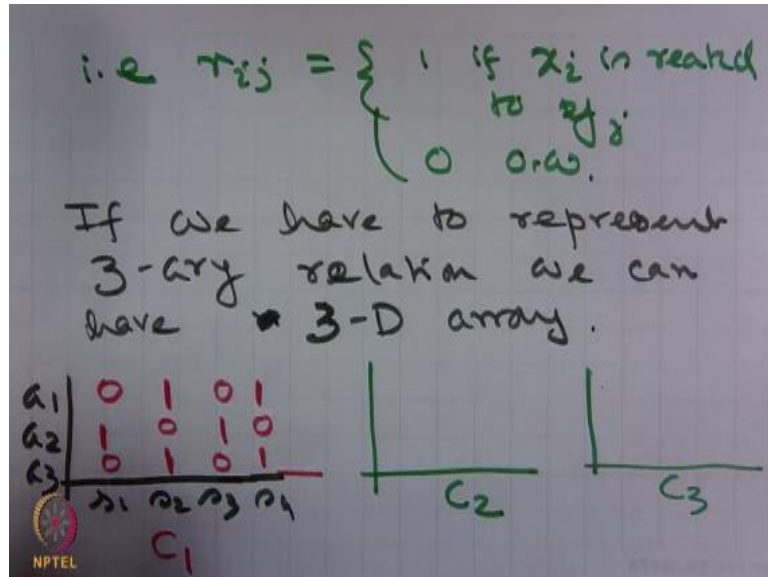 i.e r_ij = { 1 if x_i is reatd
to y_j
0 o.w.
If we have to represent
3-ary relation we can
have 3-D array.
a1 0 1 0 1
a2 1 0 1 0
a3 0 1 0 1
s1 s2 s3 s4
C1
C2
C3
NPTEL